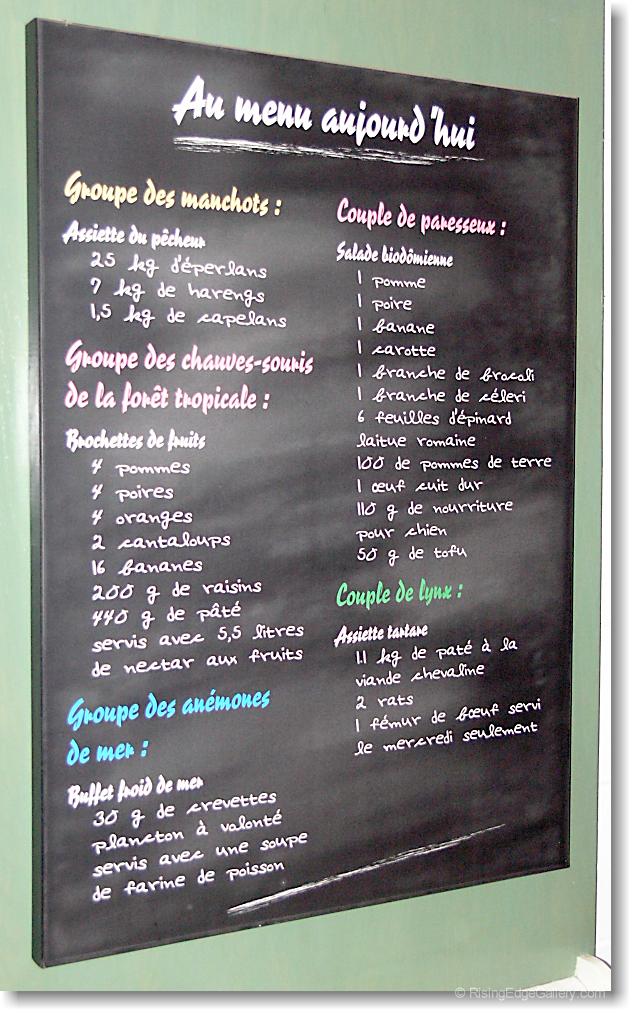 Au menu aujourd'hui
Groupe des manchots :
Assiette du pêcheur
25 kg d'éperlans
7 kg de harengs
1,5 kg de capelans
Groupe des chauves-souris
de la forêt tropicale :
Brochettes de fruits
4 pommes
4 poires
4 oranges
2 cantaloups
16 bananes
200 g de raisins
440 g de pâté
servis avec 5,5 litres
de nectar aux fruits
Groupe des anémones
de mer :
Buffet froid de mer
30 g de crevettes
plancton à volonté
servis avec une soupe
de farine de poisson
Couple de paresseux :
Salade biodômienne
1 pomme
1 poire
1 banane
1 carotte
1 branche de brocoli
1 branche de céleri
6 feuilles d'épinard
laitue romaine
100 de pommes de terre
1 œuf cuit dur
110 g de nourriture
pour chien
50 g de tofu
Couple de lynx :
Assiette tartare
1.1 kg de paté à la
viande chevaline
2 rats
1 fémur de bœuf servi
le mercredi seulement
© RisingEdgeGallery.com